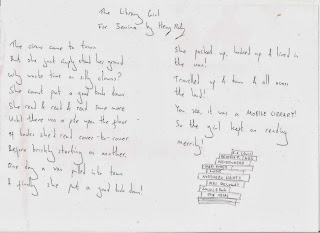 The Library Girl
For Semina by Henry
The circus came to town
But she just simply shut her gourd
Why waste time on silly clowns?
She cannot put a good book down
She read & read & read some more
Until there was a pile upon the floor
Of books she'd read cover-to-cover
Before briskly starting on another.
One day a van pulled into town
& finally she put a good book down!
She packed up, locked up & lived in
the van!
Travelled up & down & all over
the land!
You see, it was a MOBILE LIBRARY!
So the girl kept on reading
merrily!
NORTHERN LIGHTS
MRS DALLOWAY